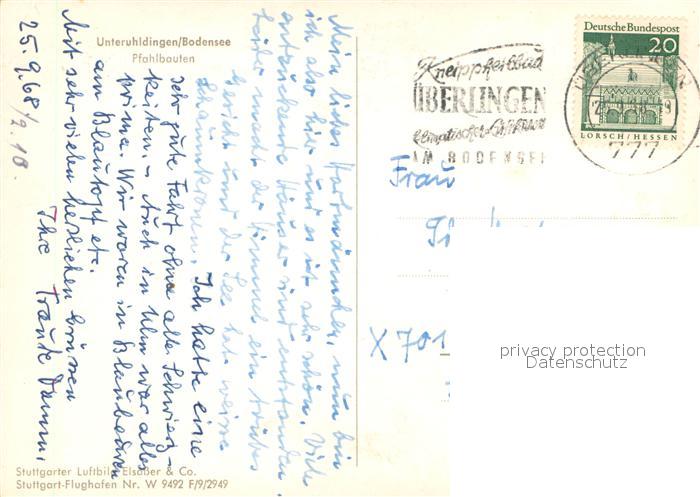 Unteruhldingen/Bodensee
Pfahlbauten
Mein liebes Hartmännchen, nun bin
ich also hier und es ist sehr schön. Viele
entzückende Häuser sind entstanden.
Leider macht der Himmel ein trübes
Gesicht und der See hat weisse
Schaumkronen. Ich hatte eine
sehr gute Fahrt ohne alle Schwierig-
keiten. - Auch in Ulm war alles
prima. Wir waren in Blaubeuren
am Blautopf etc.
Mit sehr vielen herzlichen Grüssen
Ihre Traute
25.9.68
Stuttgarter Luftbild Elsäßer & Co.
Stuttgart-Flughafen Nr. W 9492 F/9/2949
Kneippheilbad
ÜBERLINGEN
AM BODENSEE
Deutsche Bundespost
20
LORSCH/HESSEN
ÜBERLINGEN
777
Frau
X 701
privacy protection
Datenschutz